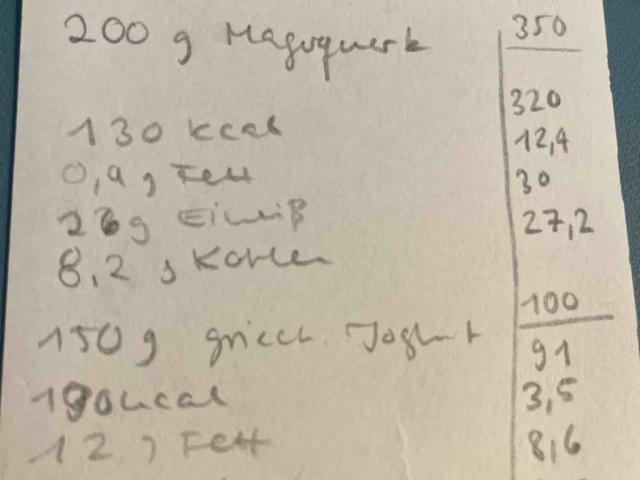 200 g Magerquark
130 kcal
0,4 g Fett
26g Eiweiß
8,2 g Kohlen
150g griech. Joghurt
190kcal
12 g Fett
350
320
12,4
30
27,2
100
91
3,5
8,6